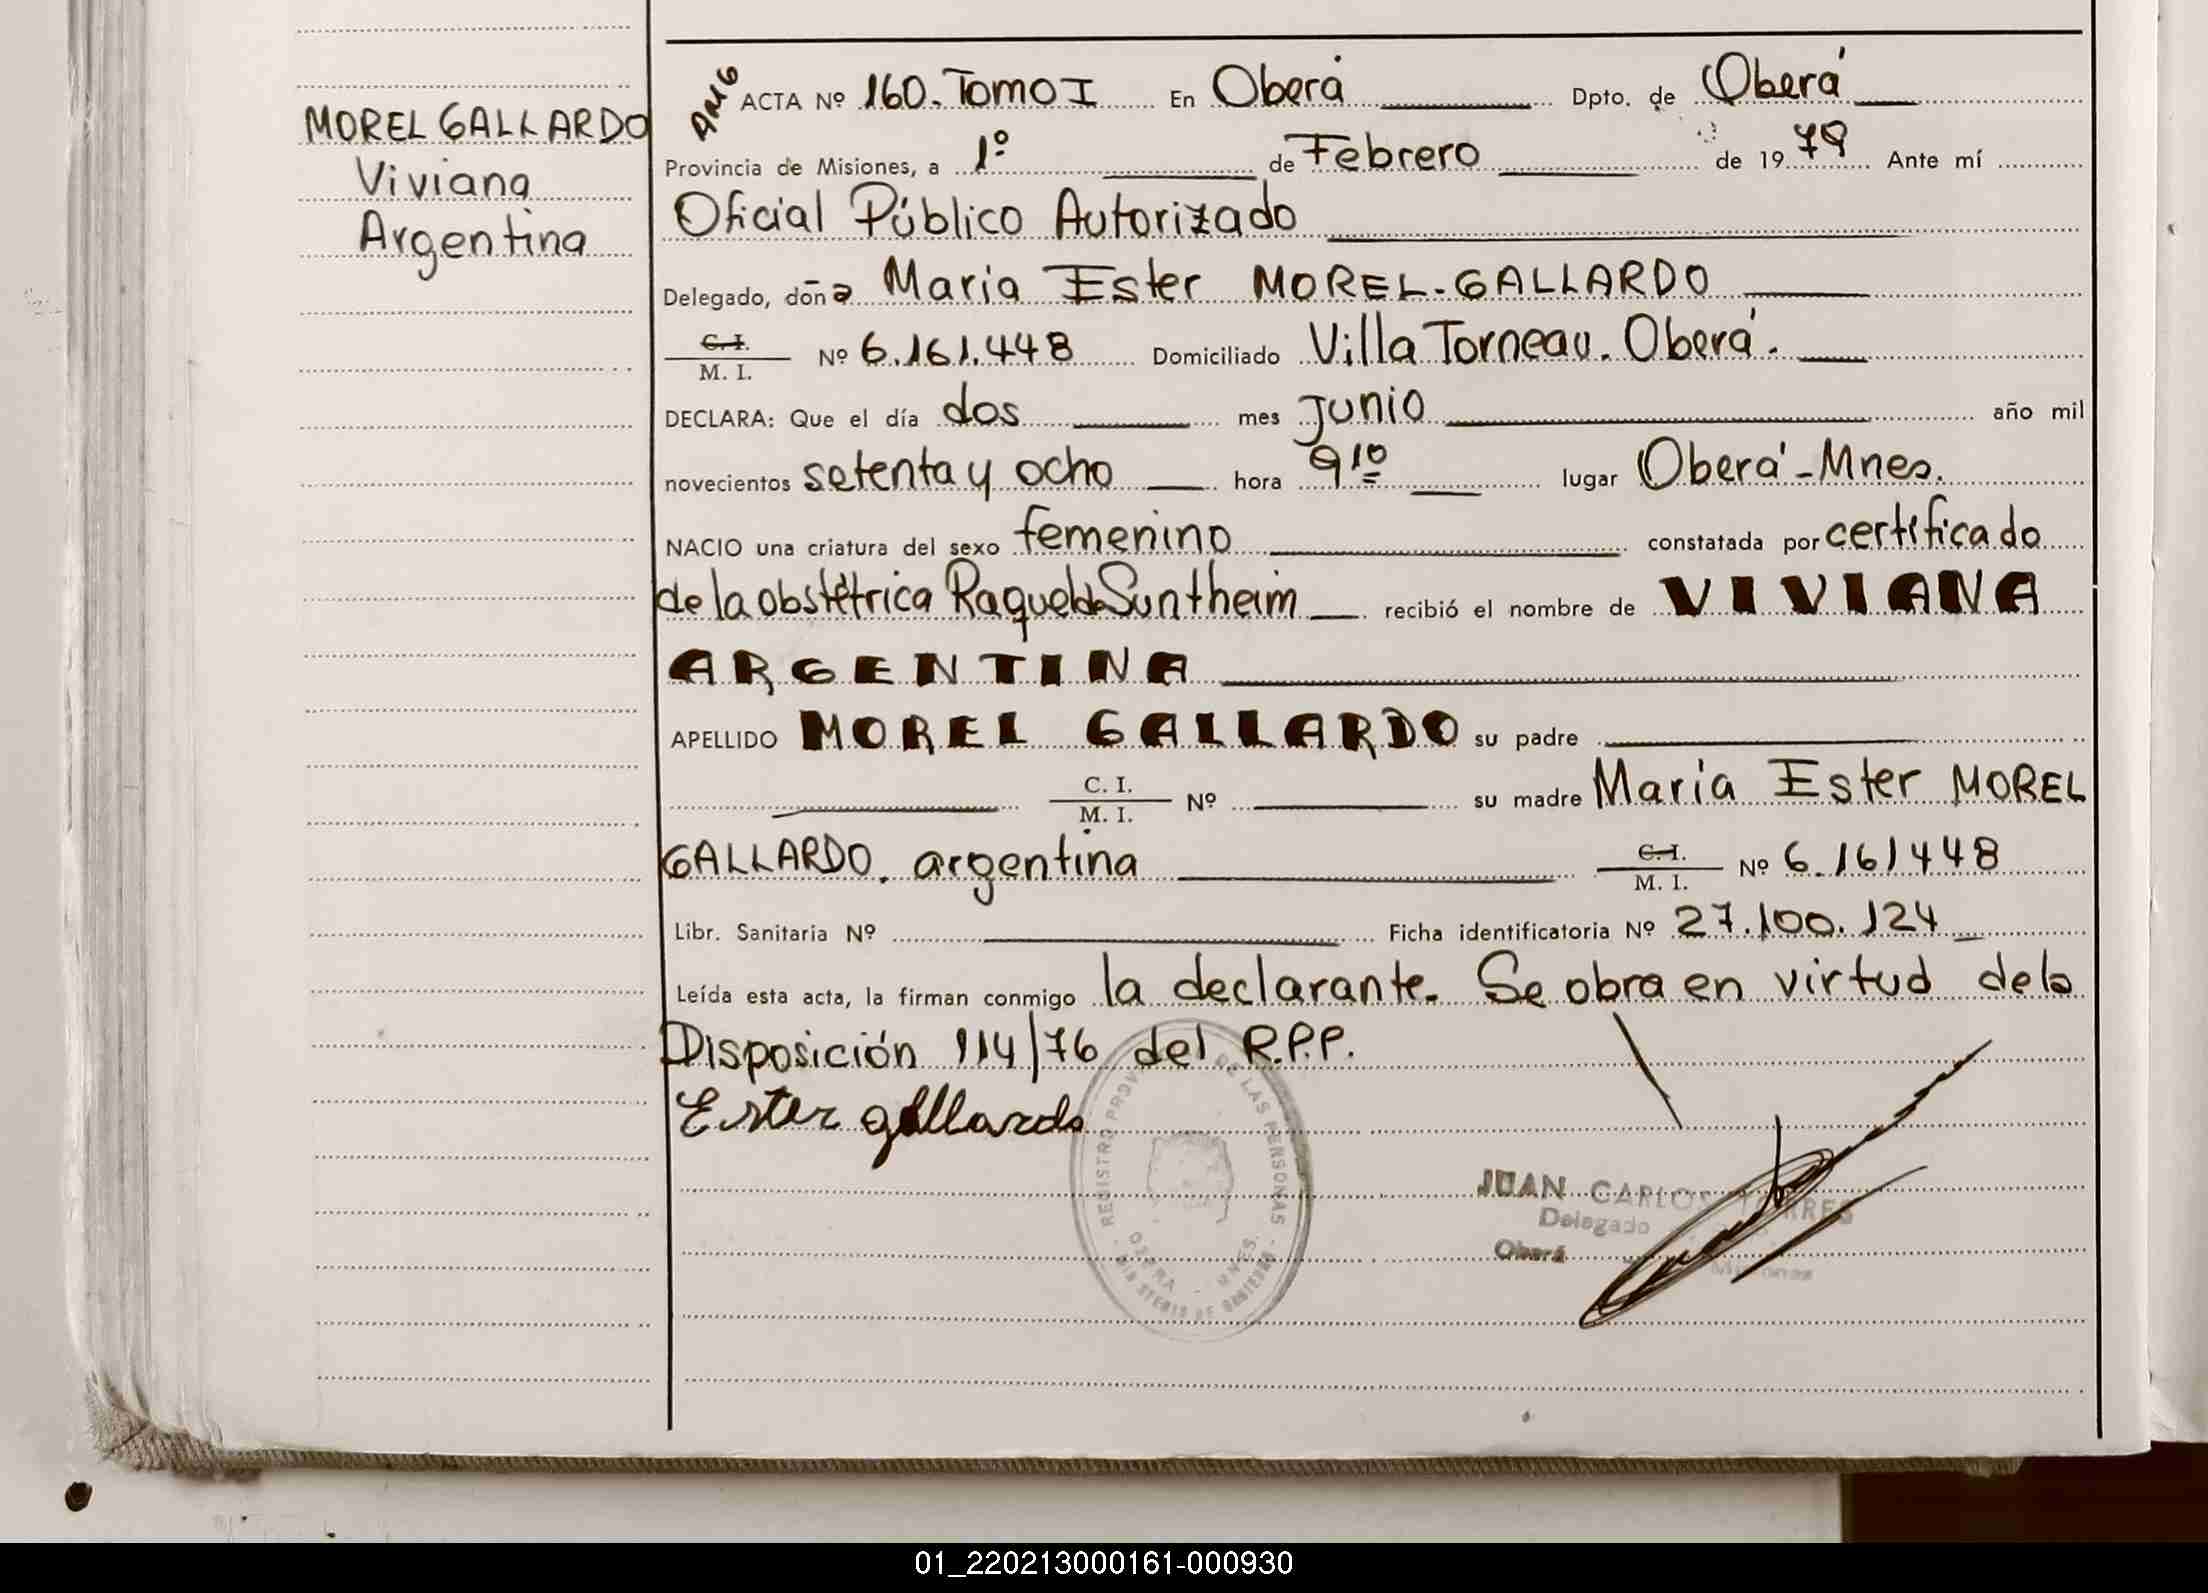 MOREL GALLARDO
Viviana
Argentina
ACTA Nº 160. Tomo I En Oberá Dpto. de Oberá
Provincia de Misiones, a 1º de Febrero de 1979 Ante mí
Oficial Público Autorizado
Delegado, doña Maria Ester MOREL-GALLARDO
C. I.
M. I. Nº 6.161.448 Domiciliado Villa Torneau. Oberá.
DECLARA: Que el día dos mes junio año mil
novecientos setenta y ocho hora 9 10 lugar Oberá-Mnes.
NACIO una criatura del sexo femenino constatada por certificado
de la obstétrica Raquel de Suntheim recibió el nombre de VIVIANA
ARGENTINA
APELLIDO MOREL GALLARDO su padre
C. I.
M. I. Nº su madre María Ester MOREL
GALLARDO. argentina C. I.
M. I. Nº 6.161448
Libr. Sanitaria Nº Ficha identificatoria Nº 27.100.124
Leída esta acta, la firman conmigo la declarante. Se obra en virtud de la
Disposición 114/76 del R.P.P.
Ester gallardo
REGISTRO PROV DE LAS PERSONAS
OBERA - MNES.
JUAN CARLOS TORRES
Delegado
Oberá Misiones
01_220213000161-000930